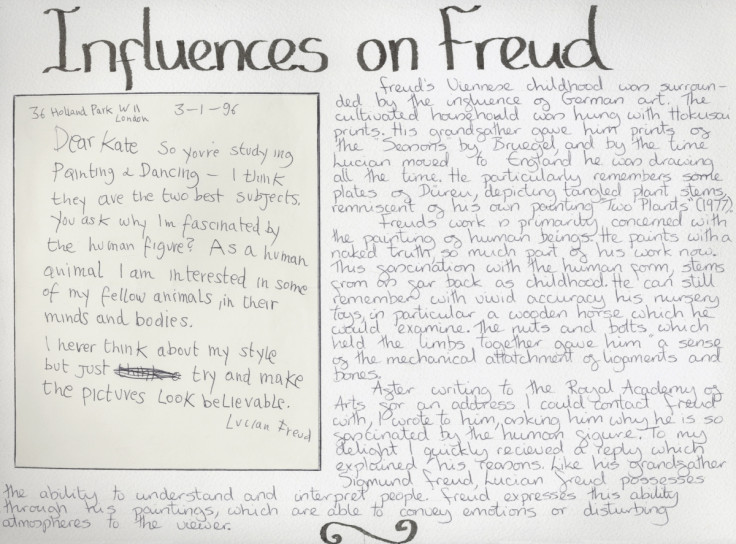 Influences on Freud
36 Holland Park W11
London
3-1-96
Dear Kate So you're studying
Painting & Dancing – I think
they are the two best subjects.
You ask why I'm fascinated by
the human figure? As a human
animal I am interested in some
of my fellow animals, in their
minds and bodies.
I never think about my style
but just try and make
the pictures look believable.
Lucian Freud
Freud's Viennese childhood was surroun-
ded by the influence of German art. The
cultivated household was hung with Hokusai
prints. His grandfather gave him prints of
the "Seasons" by Bruegel and by the time
Lucian moved to England he was drawing
all the time. He particularly remembers some
plates of Düreu, depicting tangled plant stems,
remniscent of his own painting "Two Plants" (1977).
Freuds work is primarily concerned with
the painting of human beings. He paints with a
naked truth, so much part of his work now.
This fascination with the human form, stems
from as far back as childhood. He can still
remember with vivid accuracy his nursery
toys, in particular a wooden horse which he
would examine. The nuts and bolts which
held the limbs together gave him "a sense
of the mechanical attatchment of ligaments and
bones.
After writing to the Royal Academy of
Arts for an address I could contact Freud
with, I wrote to him, asking him why he is so
fascinated by the human figure. To my
delight I quickly recieved a reply which
explained his reasons. Like his grandfather
Sigmund Freud, Lucian Freud possesses
the ability to understand and interpret people. Freud expresses this ability
through his paintings, which are able to convey emotions or disturbing
atmospheres to the viewer.